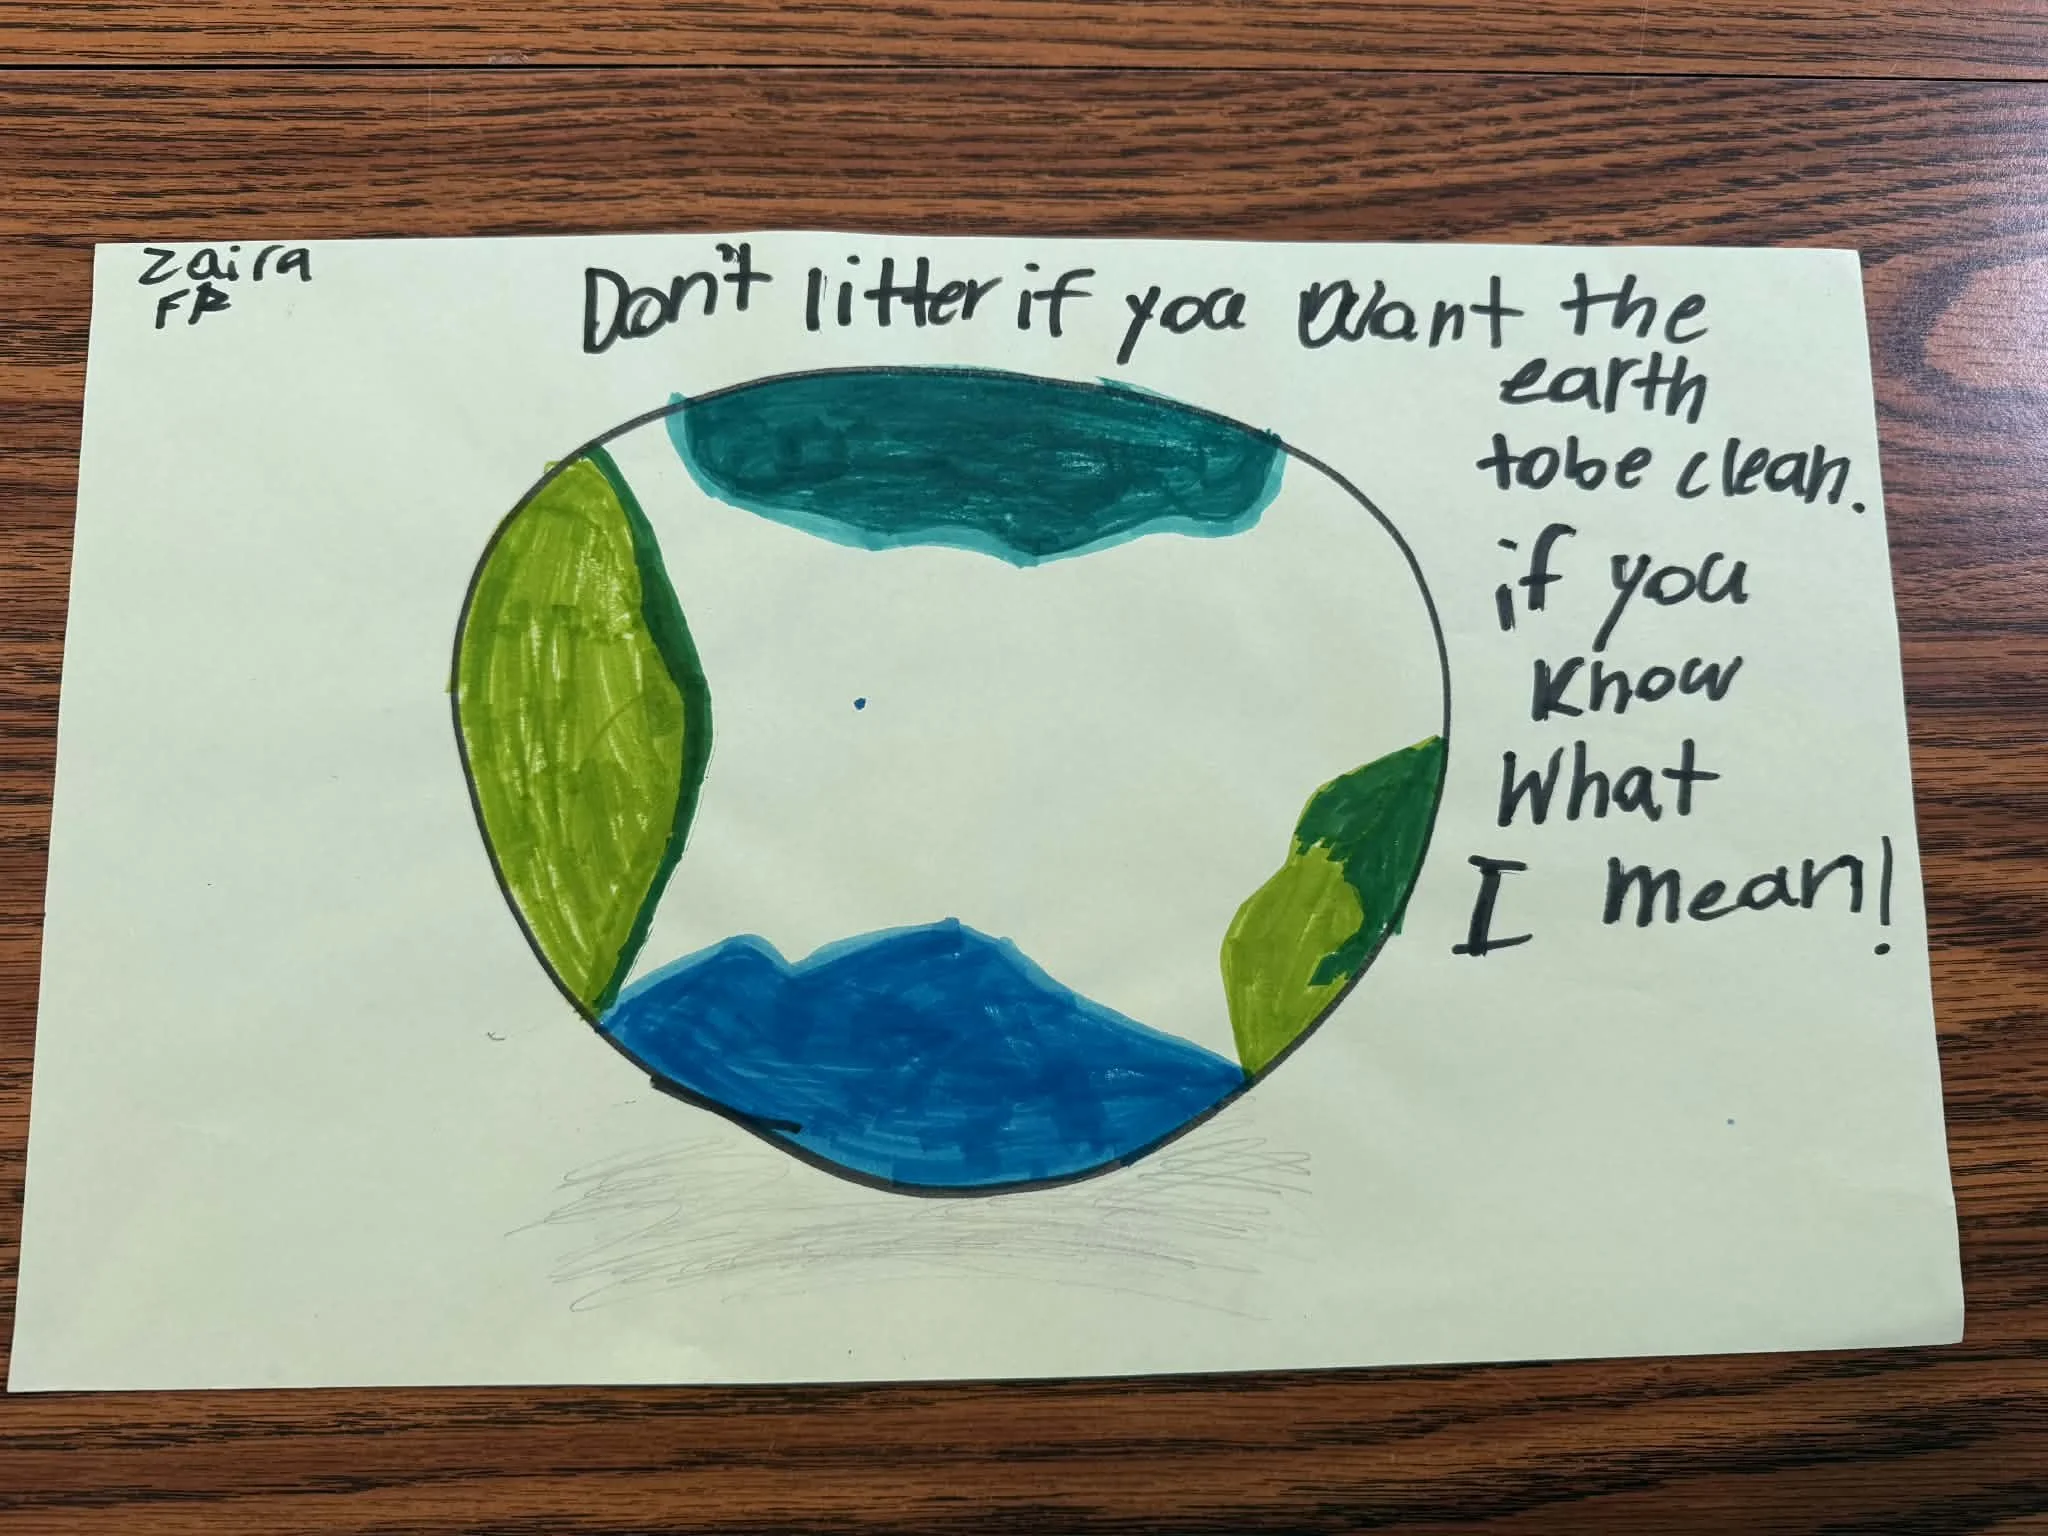 zaira
FR
Don't litter if you want the
earth
tobe clean.
if you
know
what
I mean!